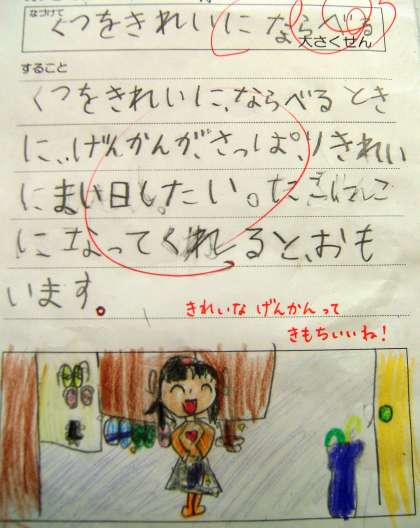 なづけて
くつをきれいに ならべる
大さくせん
すること
くつをきれいに、ならべるとき
に、げんかんが、さっぱりきれい
にまい日したい。
になってくれ、ると、おも
います。
きれいな げんかんって
きもちいいね!